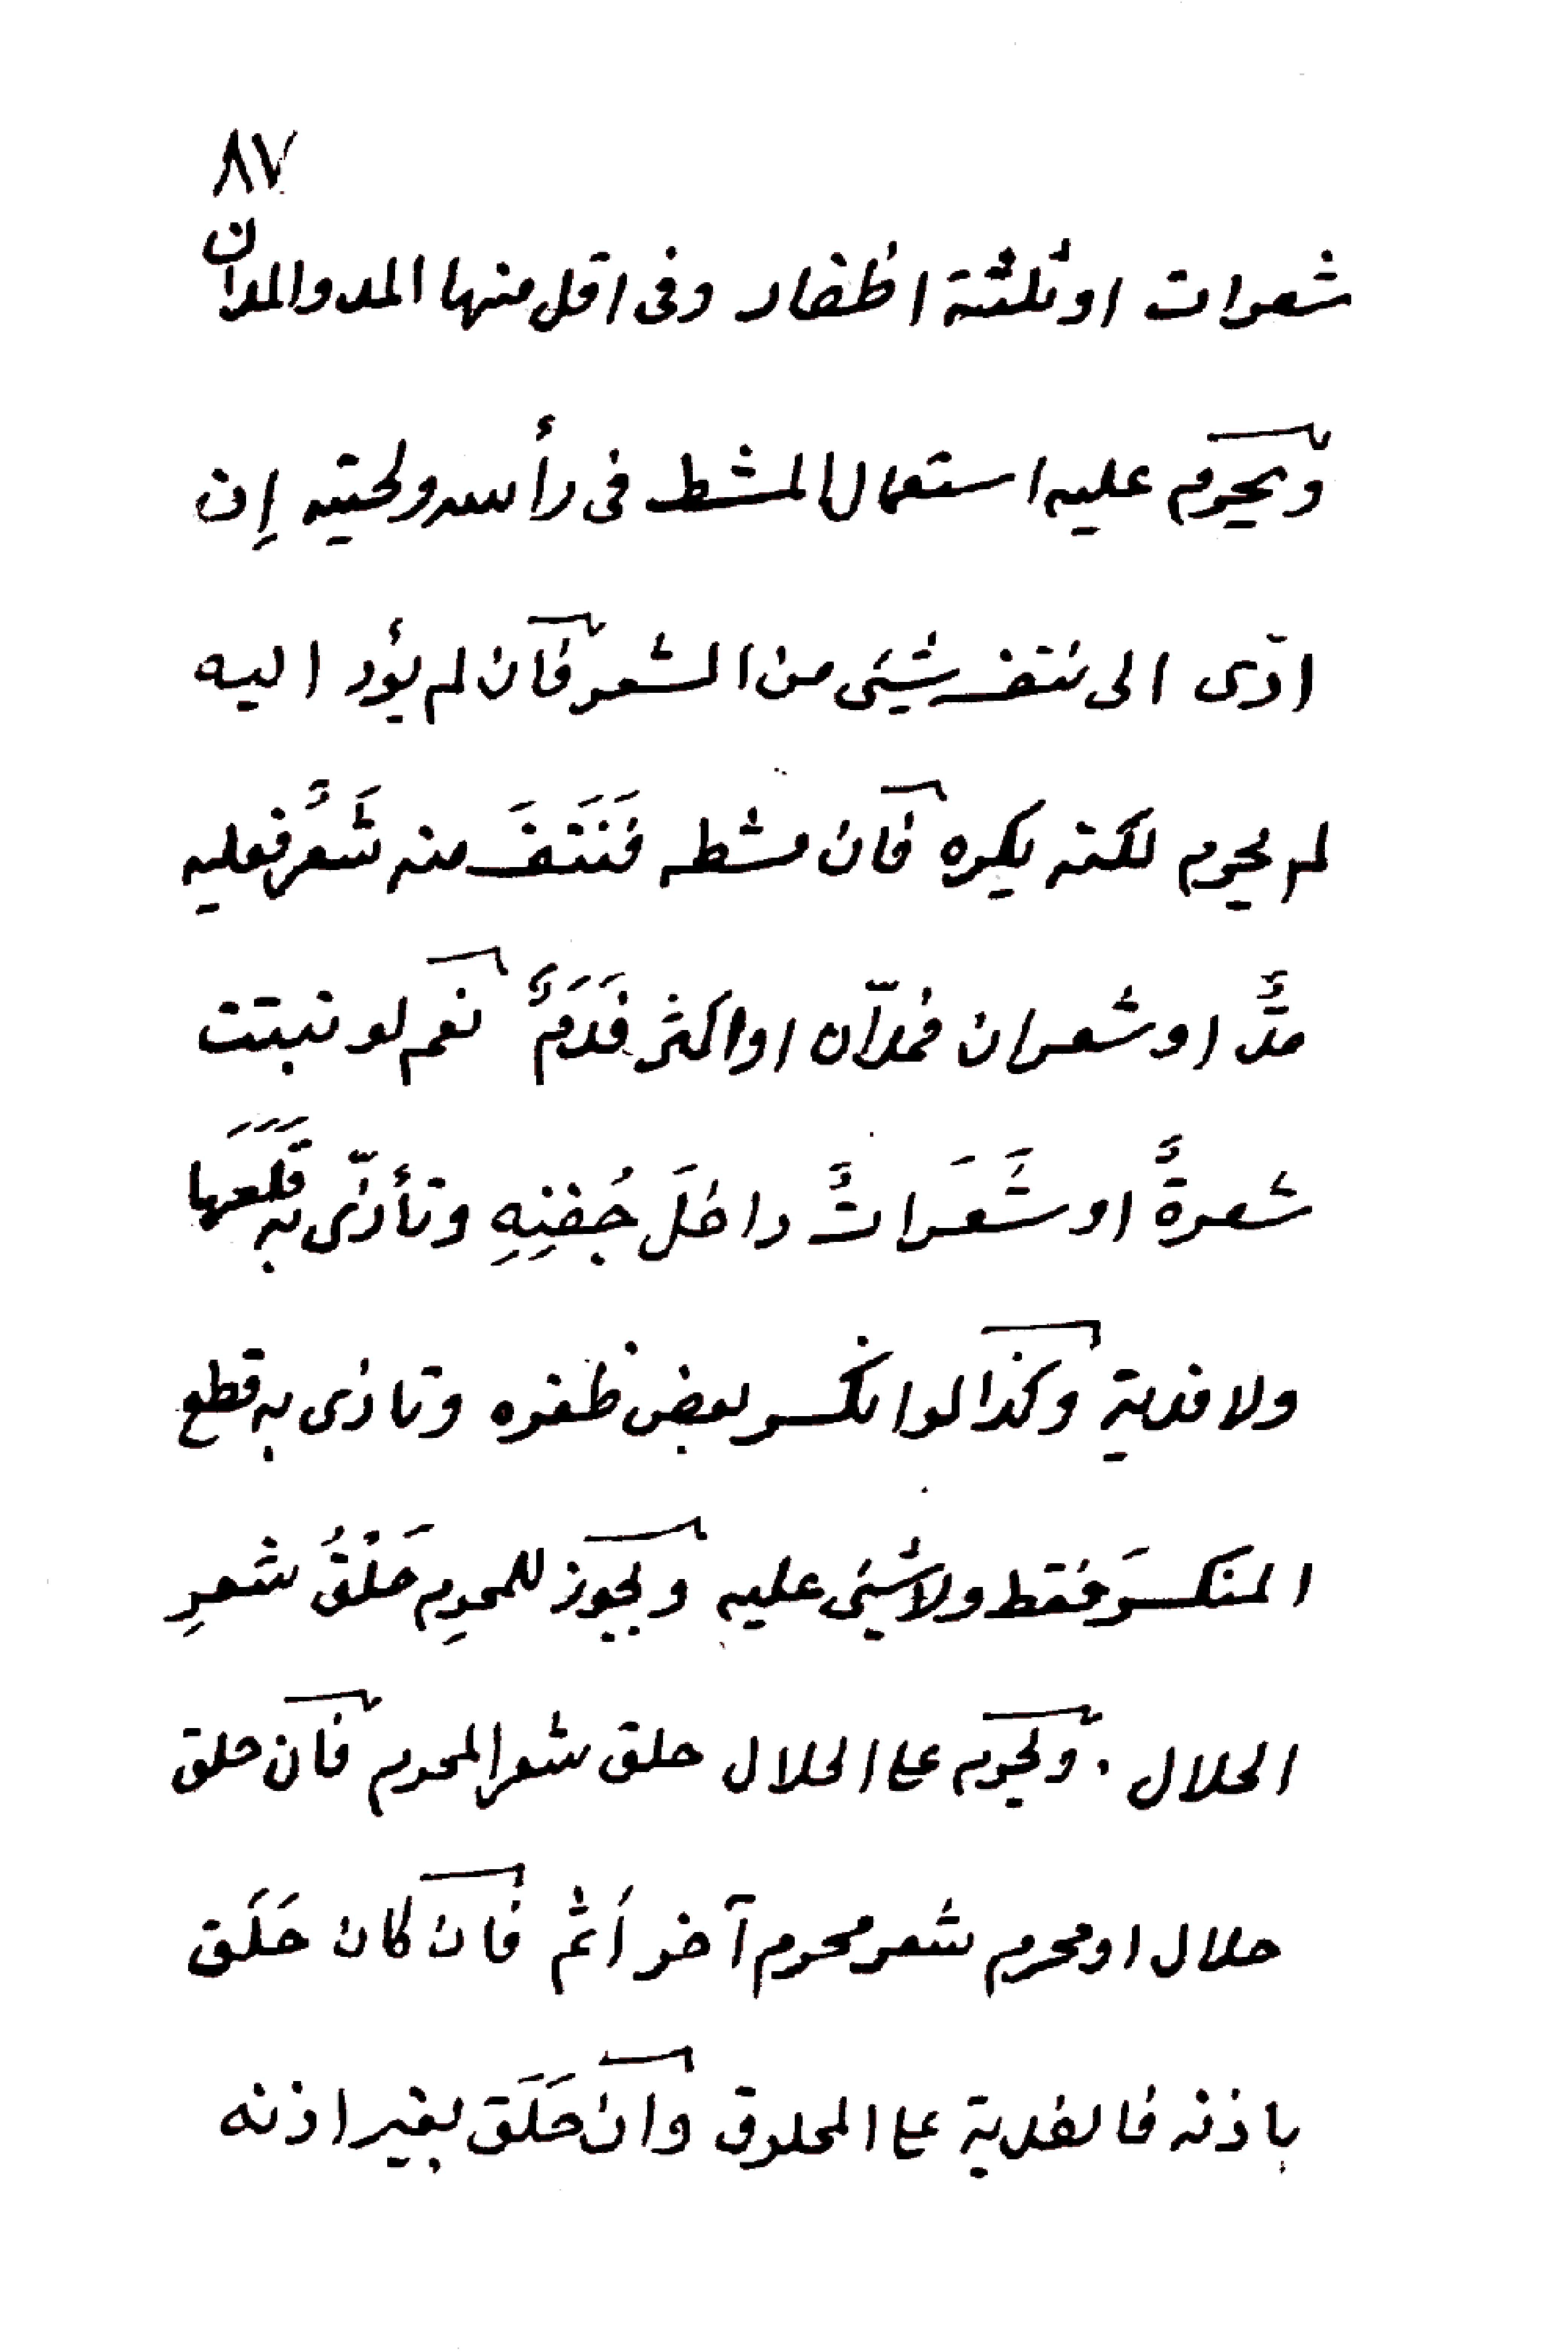 ٨٧
شعرات او ثلثة اظفار وفى اقل منها المد والمدان
ويحرم عليه استعمال المشط فى رأسه ولحيته إن
ادّى الى نتف شيئى من الشعر فان لم يؤد اليه
لم يحرم لكنه يكره فان مشطه فَنَتَفَ منه شَعْرٌ فعليه
مدٌّ او شعران فمدّان او اكثر فَدَمٌ نعم لو نبتت
شعرةٌ او شَعَراتٌ داخلَ جُفنِهِ وتأذّى به قَلَعَها
ولا فدية وكذا لو انكسر بعض ظفره وتاذى به قطع
المنكسرَ فقط ولا شيئى عليه ويجوز للمحرِم حَلْقُ شعرِ
الحلال . ويحرم على الحلال حلق شعر المحرم فان حلق
حلال او محرم شعر محرم آخر أثم فان كان حَلَق
باذنه فالفدية على المحلوق وان حَلَق بغير اذنه